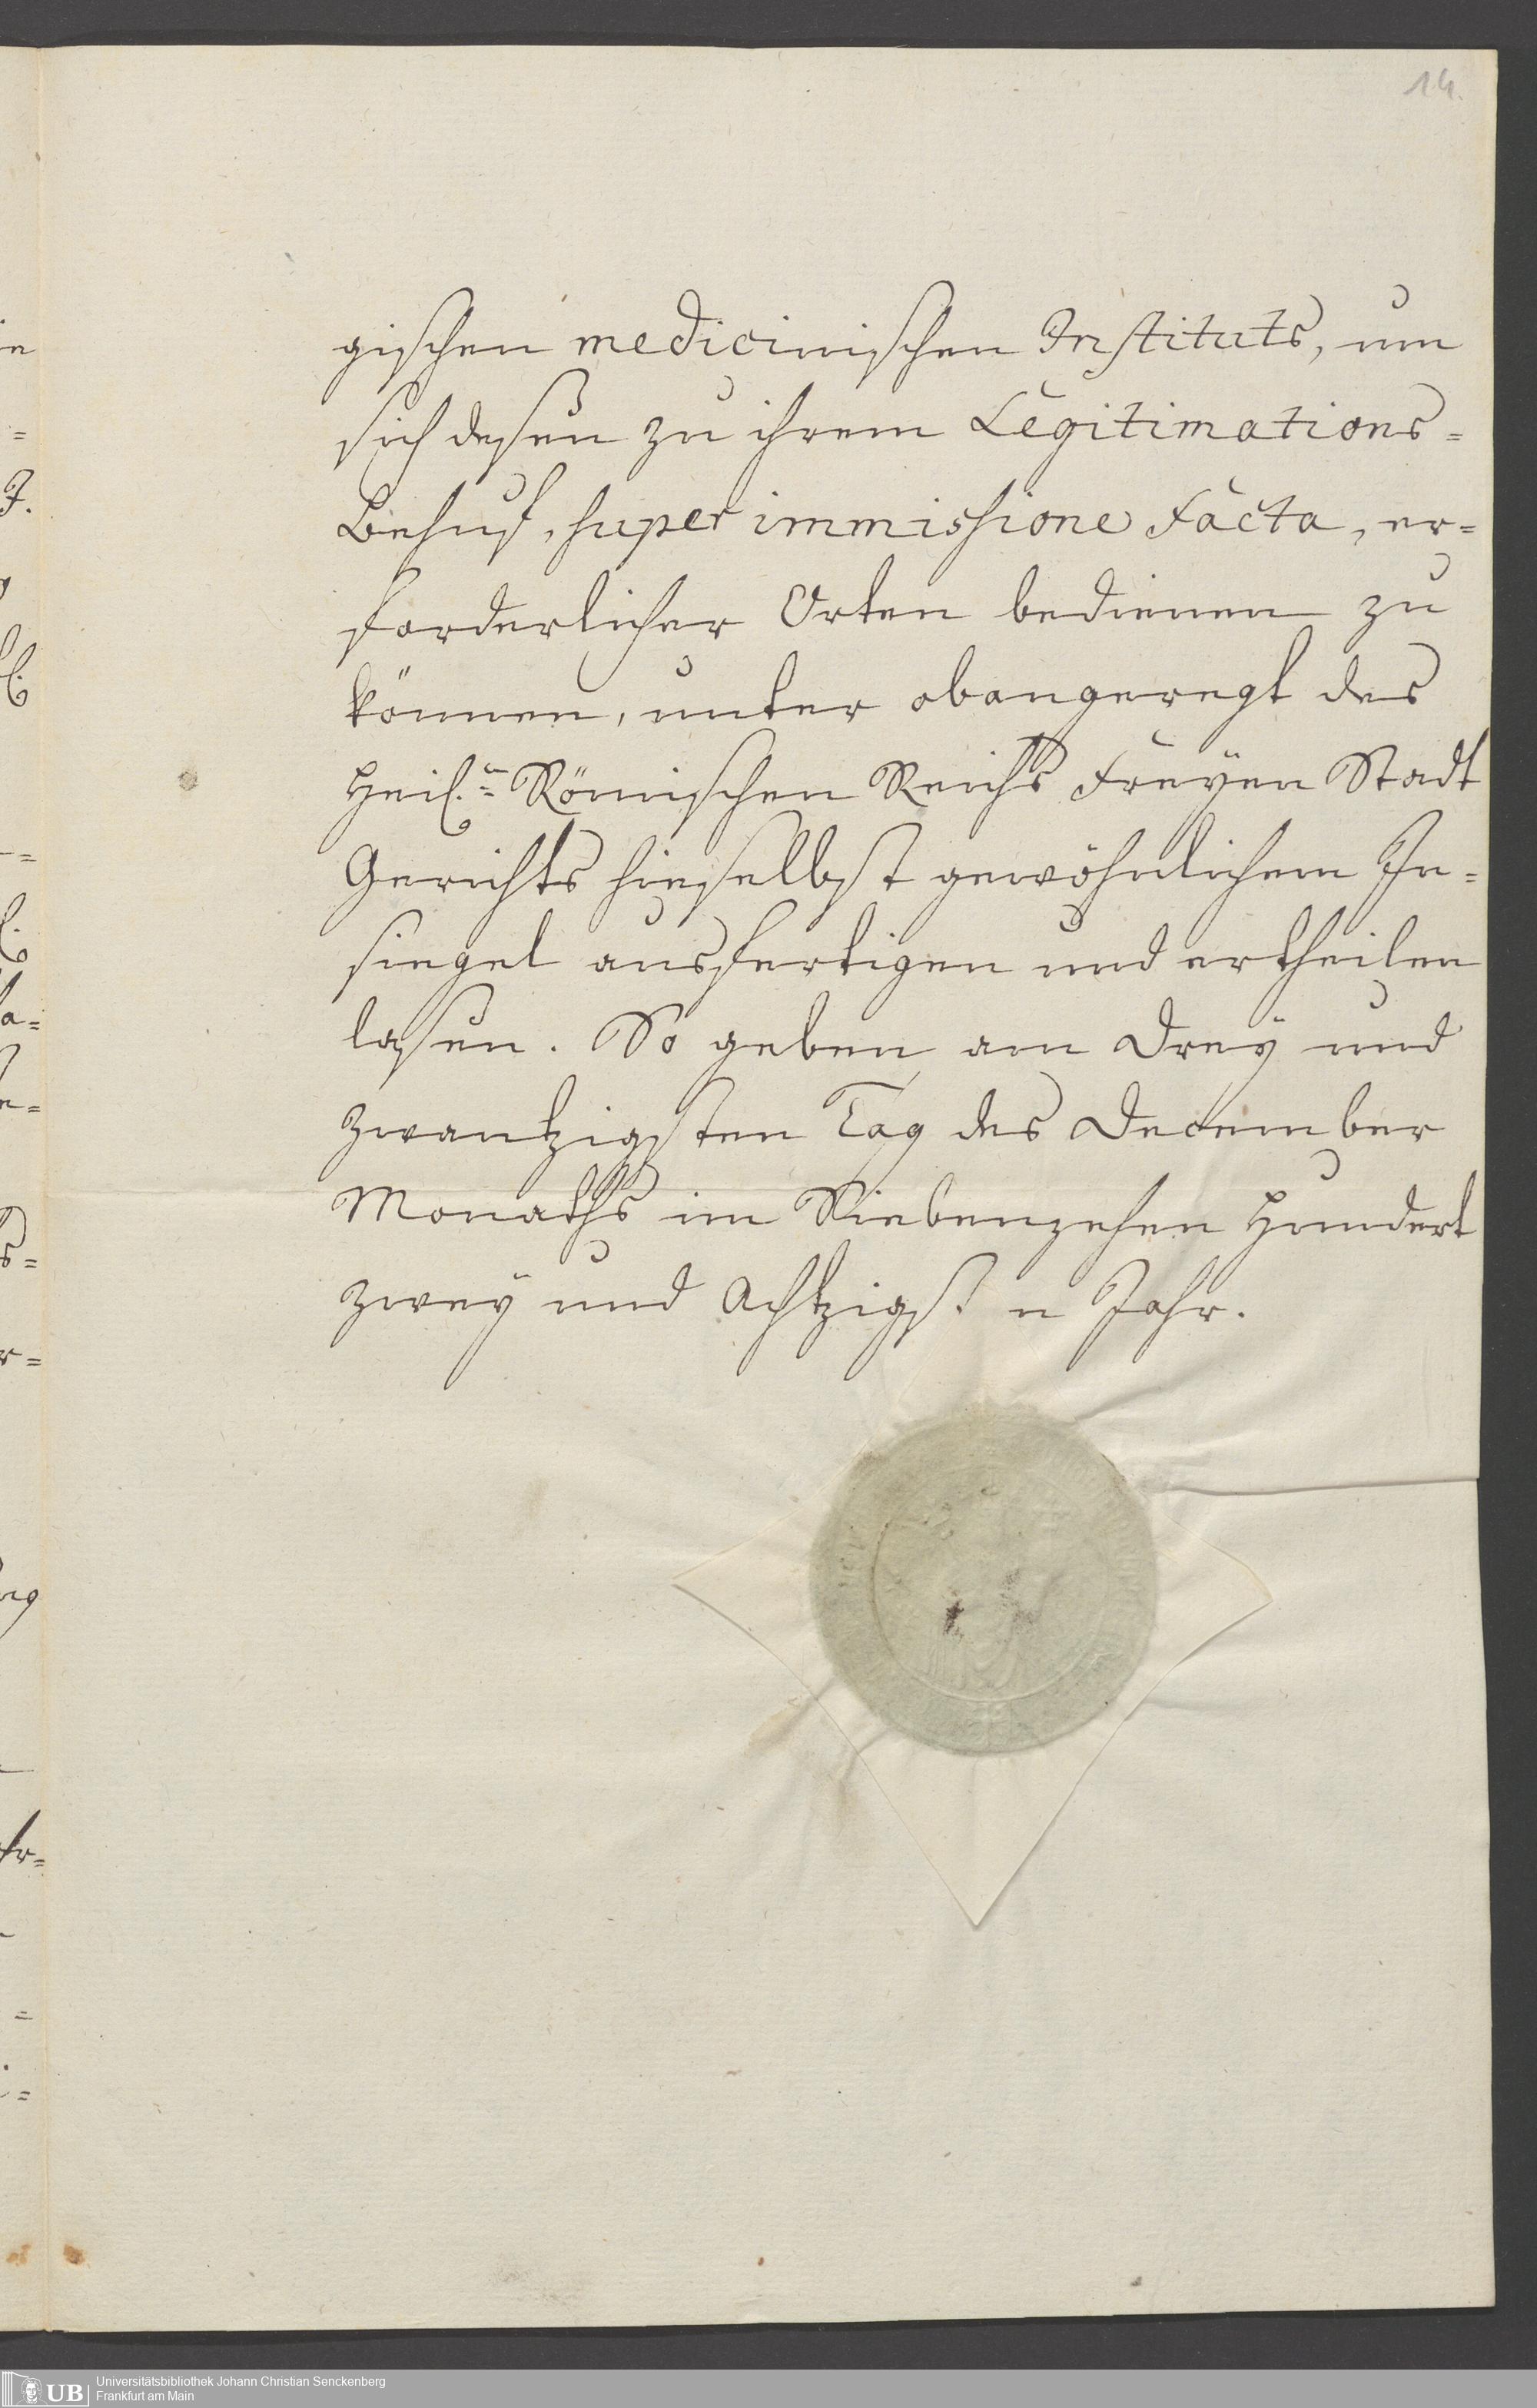 14.
gischen medicinischen Instituts, um
sich deßen zu ihrem Legitimations=
Behuf, super immissione facta, er=
forderlicher Orten bedienen zu
können, unter obangeregt des
Heil.= Römischen Reichs Freÿen Stadt
Gerichts hieselbst gewöhnlichem In=
siegel ausfertigen und ertheilen
laßen. So geben am Dreÿ und
zwantzigsten Tag des December
Monaths im Siebenzehen Hundert
zweÿ und Achtzigst n Jahr.
UB
Universitätsbibliothek Johann Christian Senckenberg
Frankfurt am Main